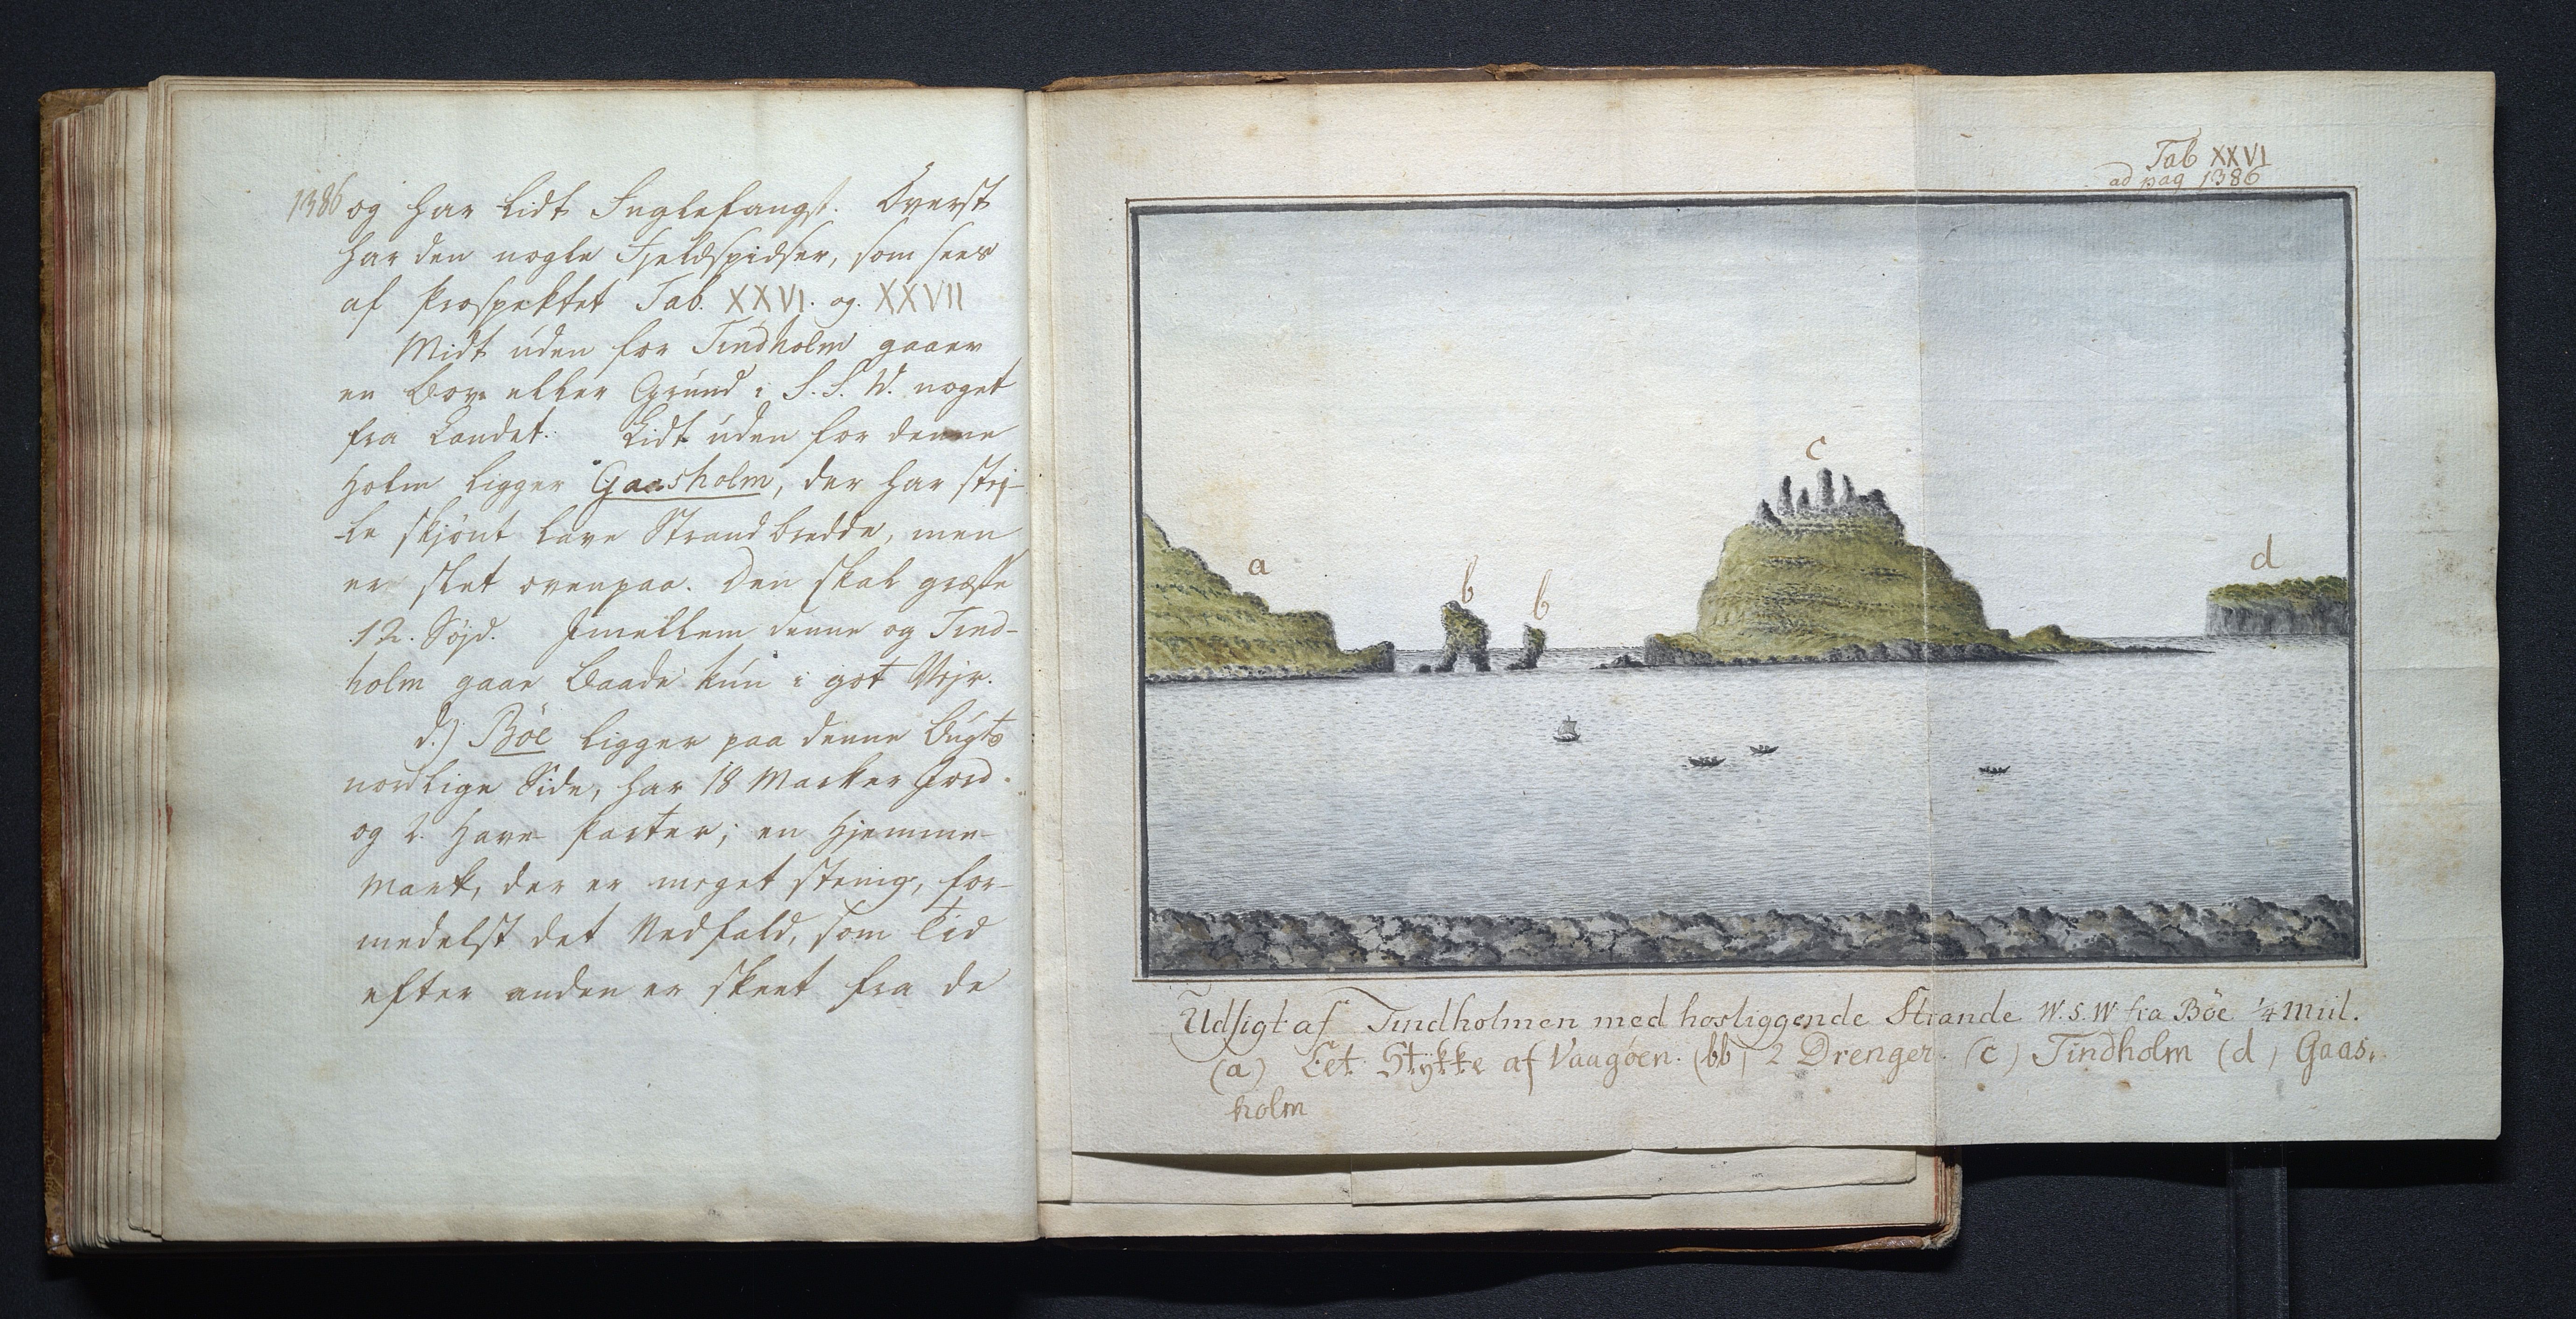 1386 og har lidt Fuglefangst. Överst
har den nogle Fjeldspidser, som sees
af Prospektet Tab. XXVI. og. XXVII
Midt uden for Tindholm gaaer
en Boe eller Grund i S. S. W. noget
fra Landet. Lidt uden for denne
Holm ligger Gaasholm, der har stej-
le skjönt lave Strandbredde, men
er slet ovenpaa. Den skal græsse
12. Söjd. Imellem denne og Tind-
holm gaae Baade kun i got Vejr.
d.) Böe ligger paa denne Bugts
nordlige Side, har 18 Marker Jord
og 2. Have Parter; en Hjemme-
Mark, der er meget stenig, for-
medelst det Nedfald, som Tid
efter anden er skeet fra de
Tab XXVI
ad pag 1386
c
d
a
b
b
Udsigt af Tindholmen med hosliggende Strande W. S. W fra Böe ¼ Miil.
(a) Eet Stykke af Vaagöen. (bb) 2 Drenger. (c) Tindholm (d) Gaas-
holm